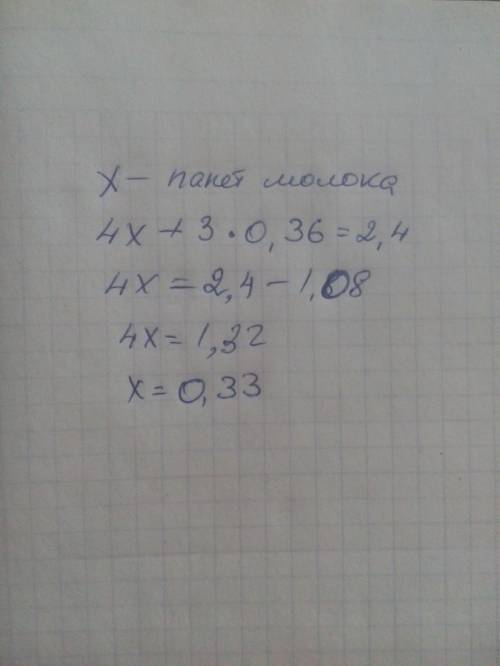 x – пакет молока
4x + 3 · 0,36 = 2,4
4x = 2,4 – 1,08
4x = 1,32
x = 0,33